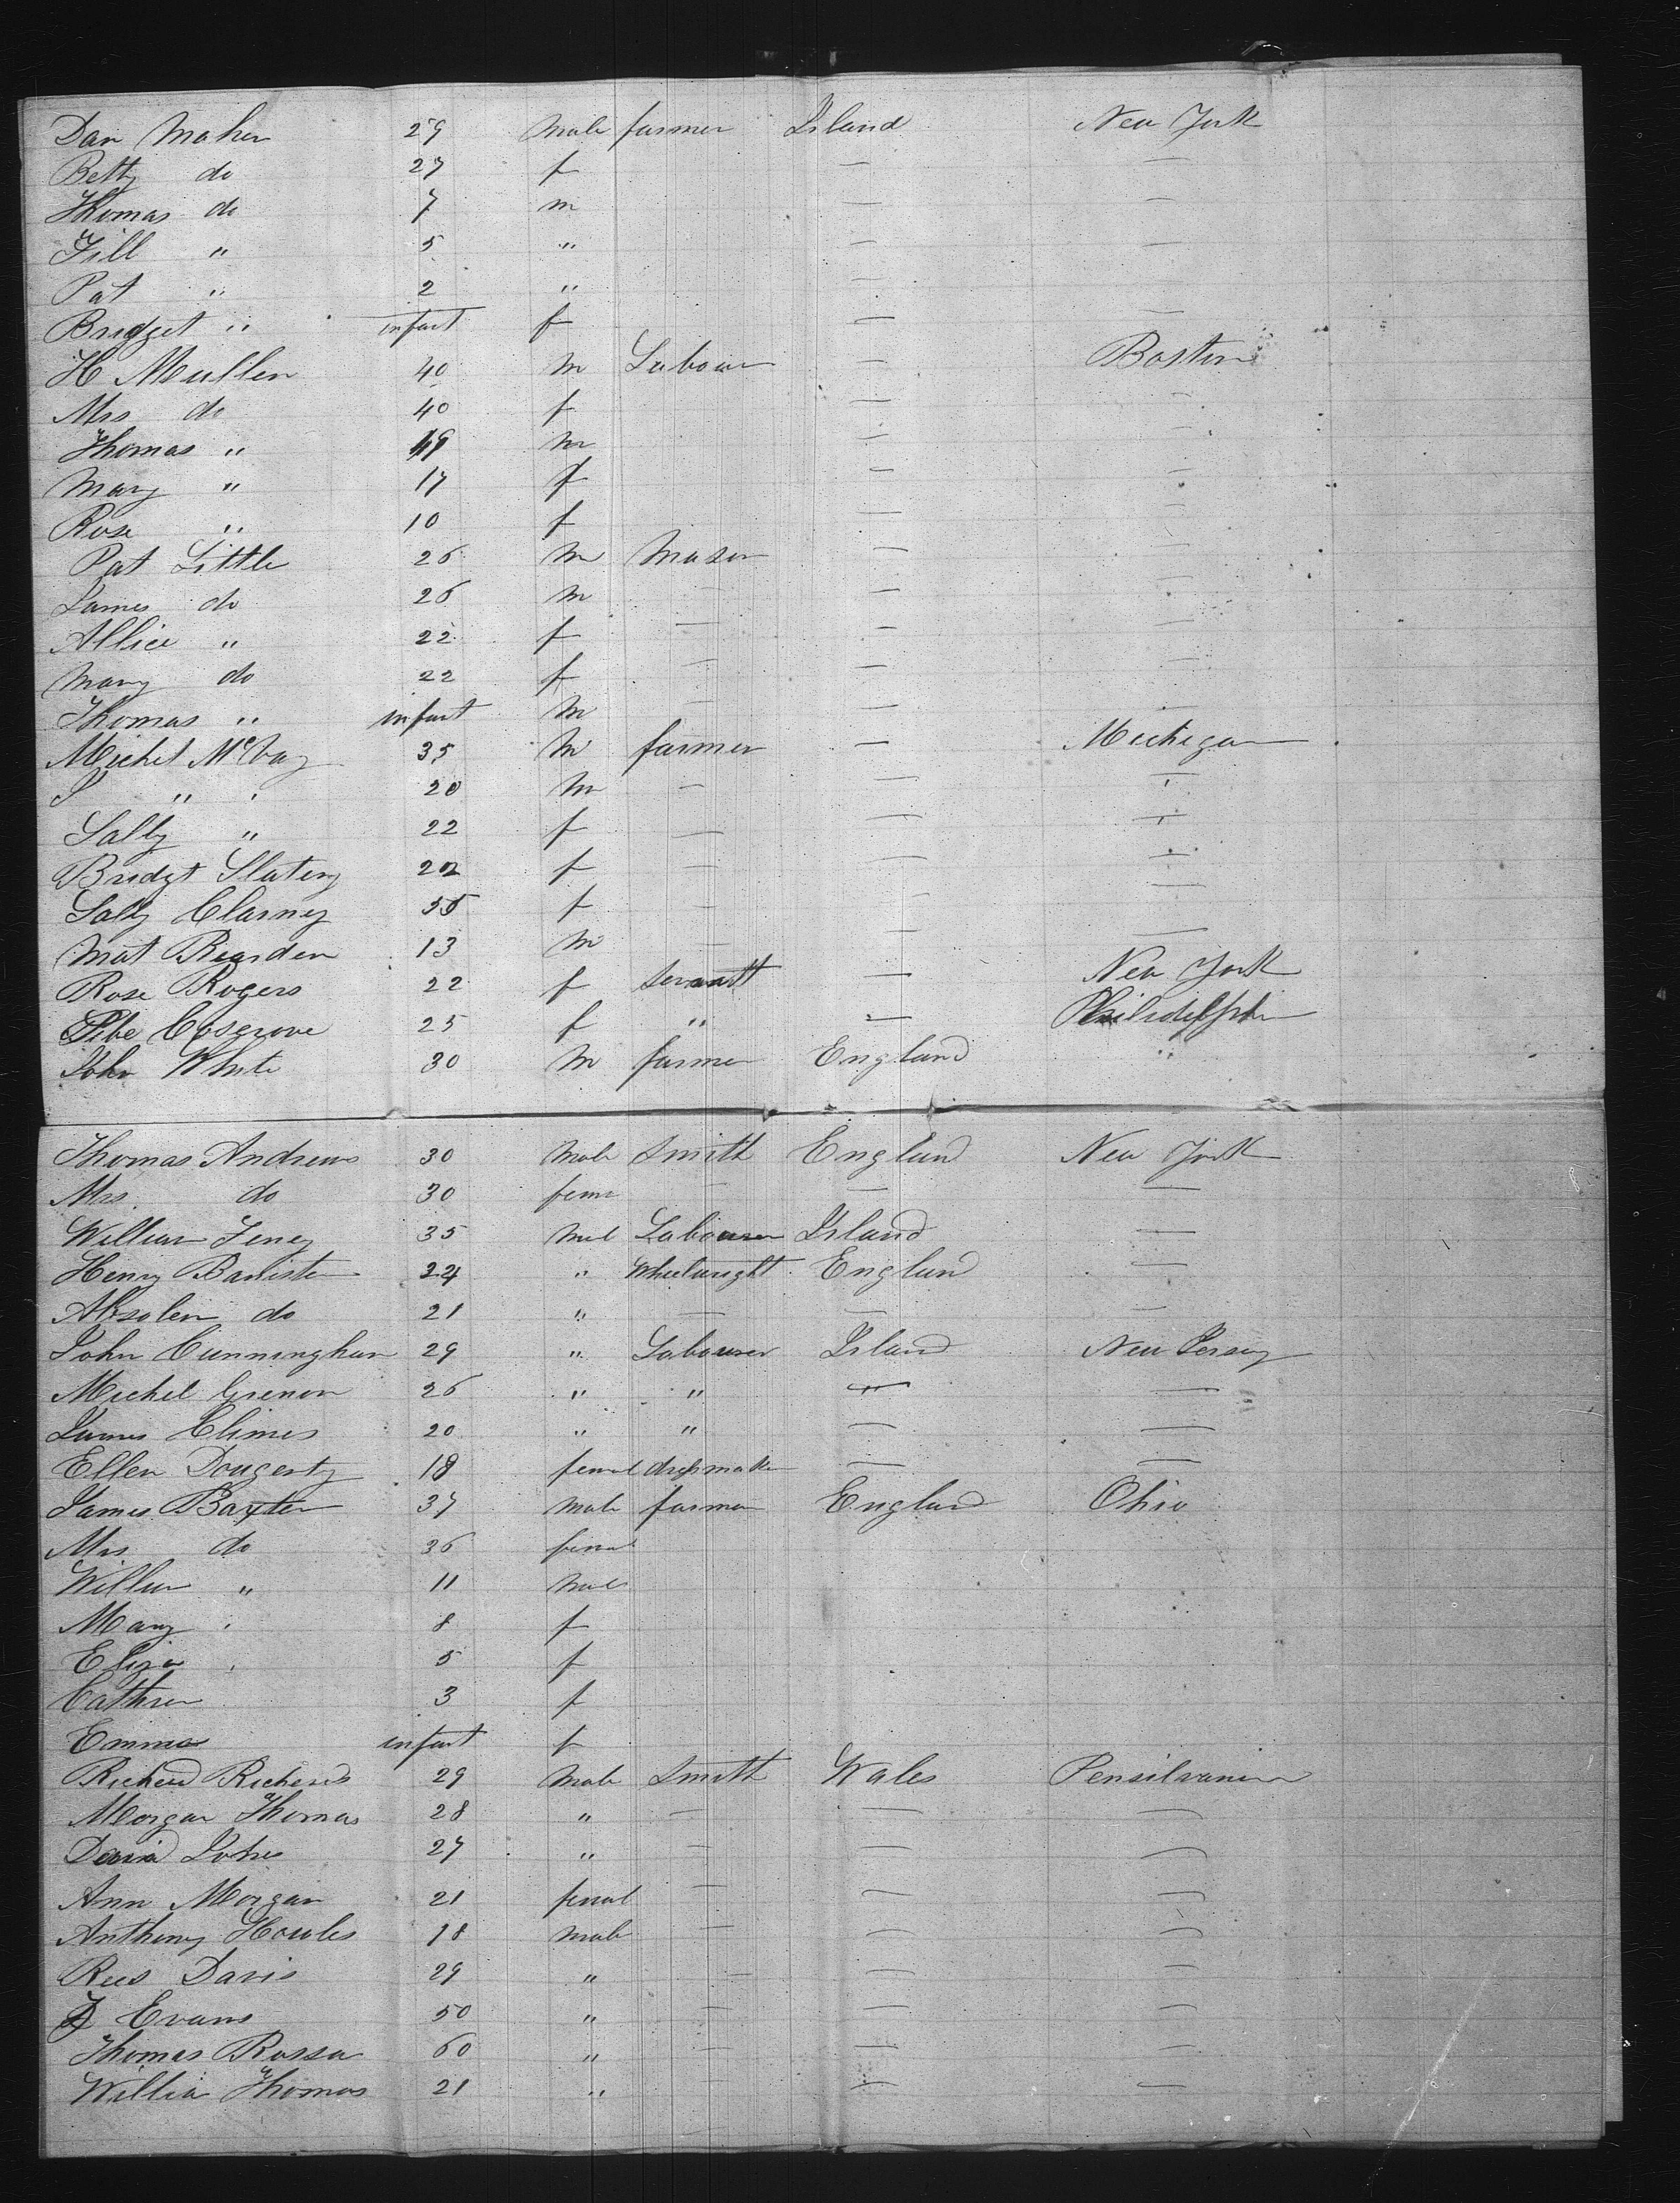 Dan Maher 29 Male farmer Irland New York
Betty do 27 f — —
Thomas do 7 m — —
Fill " 5 " — —
Pat " 2 " —
Bridget " infant f — —
H Mullen 40 m Labour — Boston
Mrs do 40 f — —
Thomas " 19 m — —
Mary " 17 f — —
Rose " 10 f — —
Pat Little 26 m Mason — —
James do 26 m — — —
Allice " 22 f — — —
Mary do 22 f — — —
Thomas " infant m — — —
Michel McVay 35 m farmer — Michigan
J " 20 m — — —
Sally " 22 f — — —
Bridgt Slatery 22 f — — —
Sally Clarney 55 f — — —
Mat Rearden 13 m — — —
Rose Rogers 22 f Servantt — New York
Cosgrove 25 f " — Philidelphi
John White 30 m farmer England "
Thomas Andrews 30 Male Smith England New York
Mrs. do 30 feme — — —
William Feney 35 Mal Labourer Irland —
Henry Banister 24 " Wheelwright England —
Absolen do 21 " — — —
John Cunningham 29 " Labourer Irland New Jersey
Michel Grenon 26 " " " —
James Climes 20 " " — —
Ellen Dougerty 18 femal dressmaker — —
James Baxter 37 Male farmer England Ohio
Mrs. do 36 femal
William " 11 Male
Mary " 8 f
Eliza " 5 f
Cathren 3 f
Emma infant f
Richard Richards 29 Male Smith Wales Pensilvania
Morgan Thomas 28 " — — —
David Johns 27 " — — —
Ann Morgan 21 femal — — —
Anthony Howles 18 Male — — —
Rees Davis 29 " — — —
J Evans 50 " — — —
Thomas Rossa 60 " — — —
Willia Thomas 21 " — —